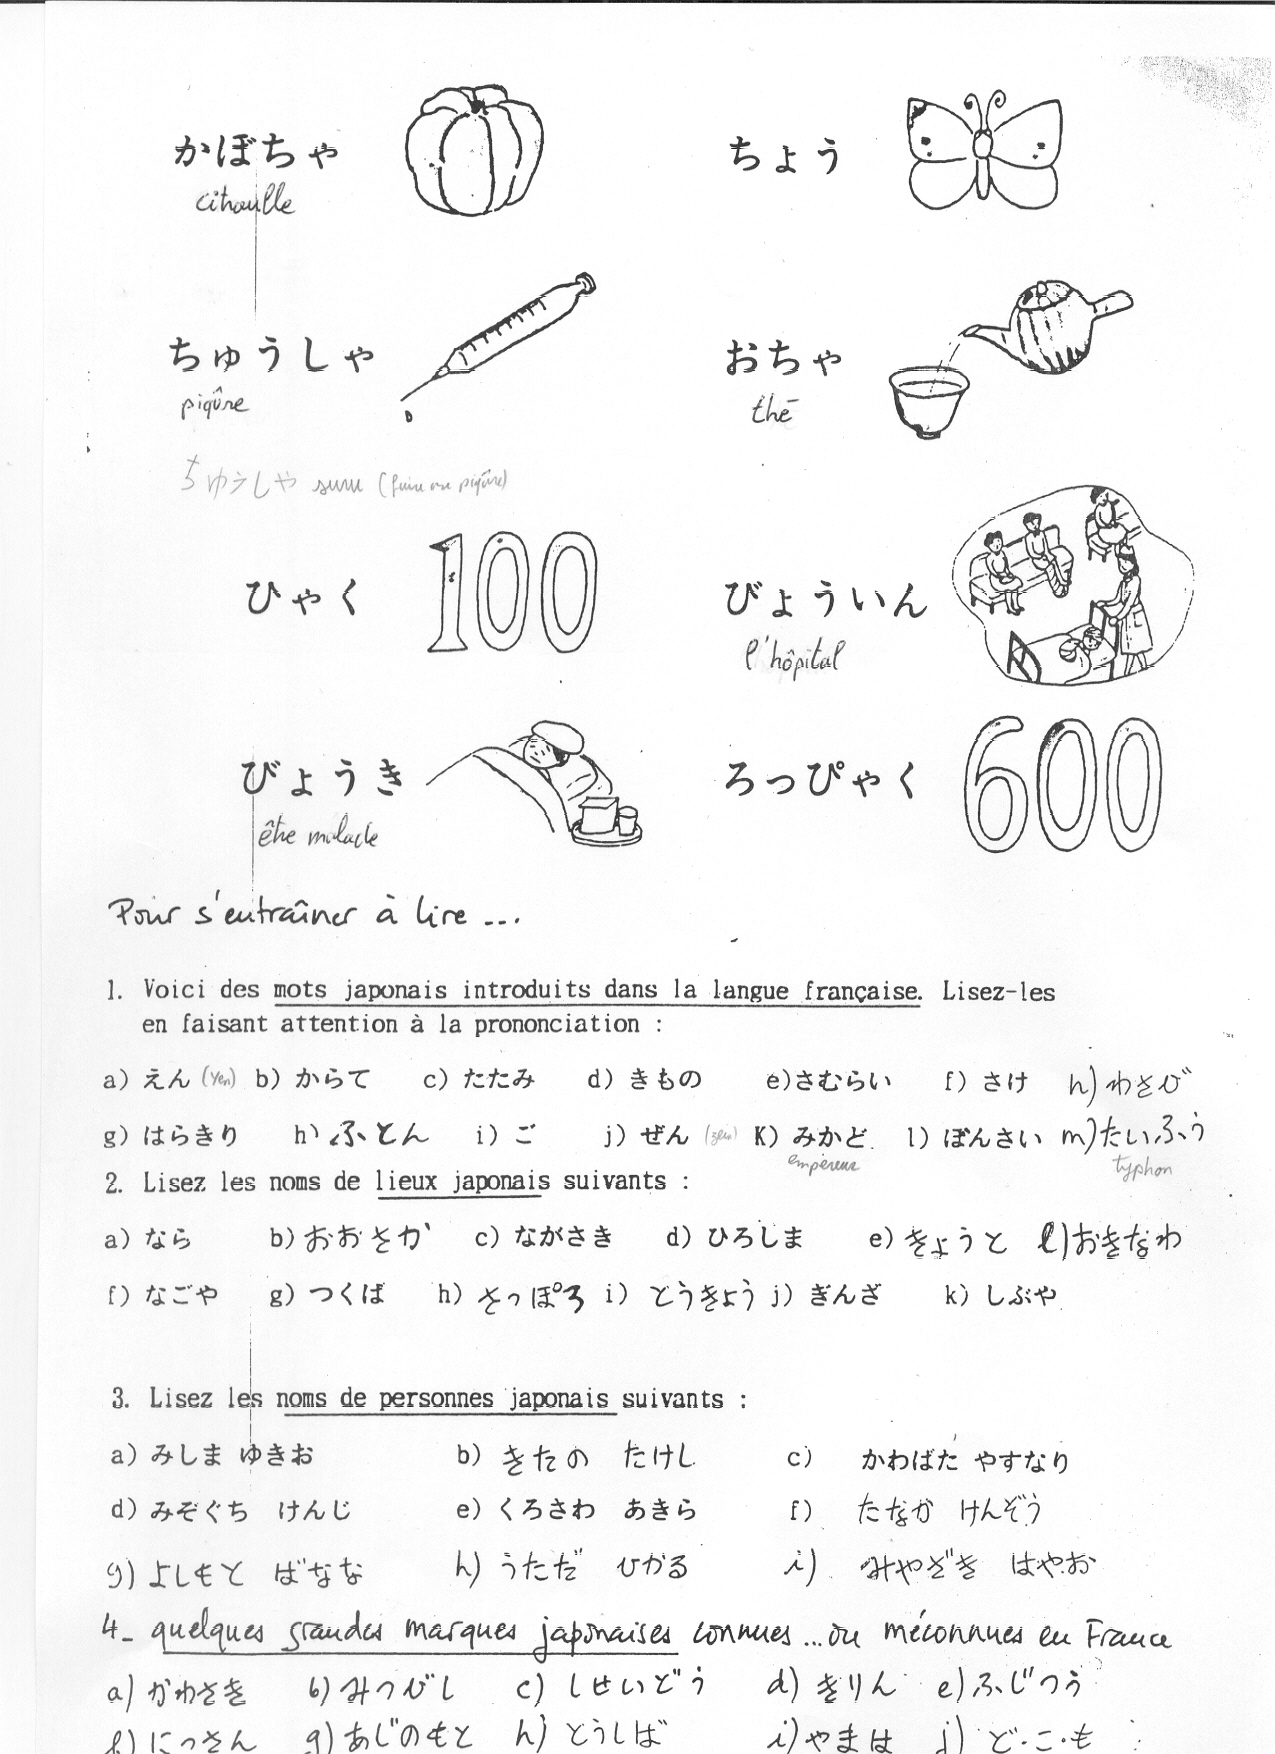 かぼちゃ ちょう
citrouille
ちゅうしゃ おちゃ
piqûre thé
ちゅうしゃ suru (faire une piqûre)
100
ひゃく びょういん
l'hôpital
600
びょうき ろっぴゃく
être malade
Pour s'entraîner à lire ...
1. Voici des mots japonais introduits dans la langue française. Lisez-les
en faisant attention à la prononciation :
a) えん (Yen) b) からて c) たたみ d) きもの e)さむらい f) さけ n) わさび
g) はらきり h) ふとん i) ご j) ぜん (zen) K) みかど l) ぼんさい m)たいふう
empereur typhon
2. Lisez les noms de lieux japonais suivants :
a) なら b) おおさか c) ながさき d) ひろしま e) きょうと l)おきなわ
f) なごや g) つくば h) さっぽろ i) とうきょう j) ぎんざ k) しぶや
3. Lisez les noms de personnes japonais suivants :
a) みしま ゆきお b) きたの たけし c) かわばた やすなり
d) みぞぐち けんじ e) くろさわ あきら f) たなか けんぞう
g) よしもと ばなな h) うただ ひかる i) みやざき はやお
4- quelques grandes marques japonaises connues ... ou méconnues en France
a) かわさき b) みつびし c) しせいどう d) きりん e) ふじつう
f) にっさん g) あじのもと h) とうしば i) やまは j) ど・こ・も